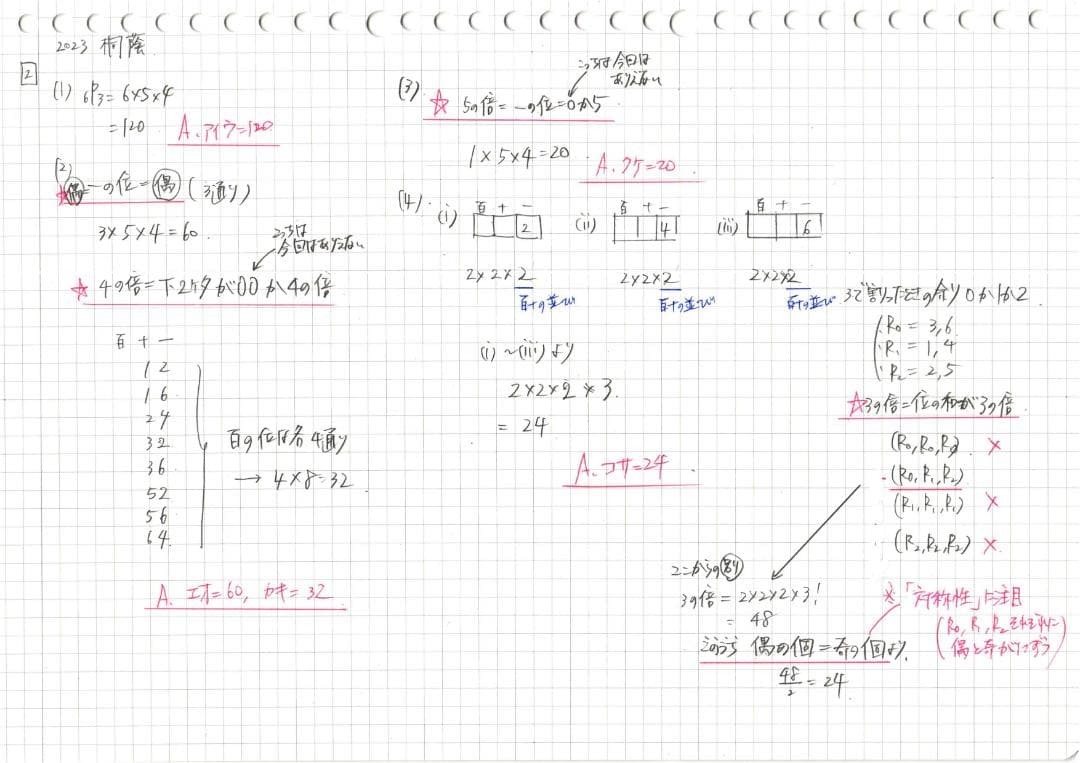 2023 桐蔭
2
(1) 6P3 = 6×5×4
= 120
A. アイウ=120
(2)
☆偶=一の位=偶 (3通り)
3×5×4=60.
こっちは
今回はありえない
☆ 4の倍=下2ケタが00か4の倍
百 十 一
1 2
1 6
2 4
3 2
3 6
5 2
5 6
6 4
百の位は各4通り
→ 4×8=32
A. エオ=60, カキ=32
(3)
こっちは今回は
ありえない
☆ 5の倍=一の位=0か5
1×5×4=20
A. クケ=20
(4).
(i) 百 十 一
2
(ii) 百 十 一
4
(iii) 百 十 一
6
2×2×2
百十の並び
2×2×2
百十の並び
2×2×2
百十の並び
(i)~(iii)より
2×2×2×3
= 24
A. コサ=24
3で割ったときの余り 0か1か2
R0 = 3,6
R1 = 1,4
R2 = 2,5
☆3の倍=位の和が3の倍
(R0,R0,R0) ×
(R0,R1,R2)
(R1,R1,R1) ×
(R2,R2,R2) ×
ここからの
3の倍=2×2×2×3!
= 48
このうち 偶の個=奇の個より.
48/2 = 24
※「対称性」に注目
(R0,R1,R2それぞれに
偶と奇が1つずつ)